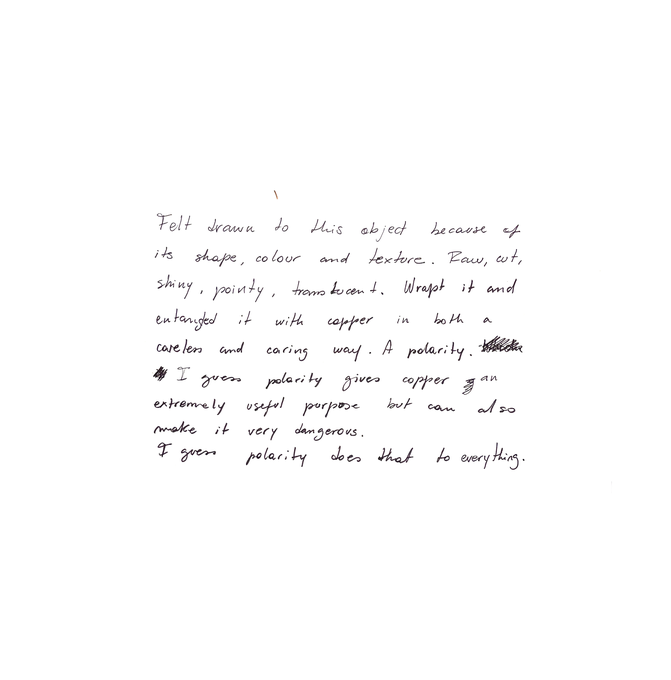 Felt drawn to this object because of
its shape, colour and texture. Raw, cut,
shiny, pointy, translucent. Wrapt it and
entangled it with copper in both a
careless and caring way. A polarity.
I guess polarity gives copper an
extremely useful purpose but can also
make it very dangerous.
I guess polarity does that to everything.